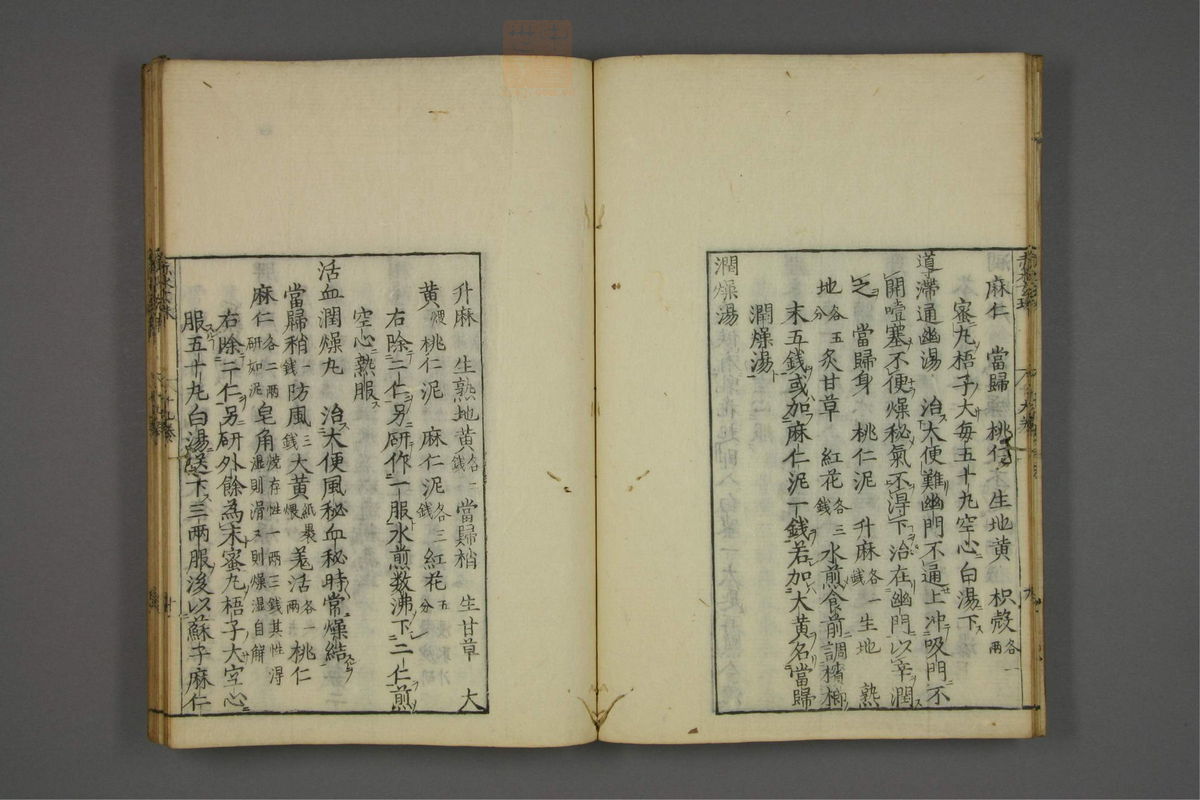 麻仁　當歸　桃仁　生地黄　枳殻各一兩
蜜丸梧子大每五十丸空心白湯下
導滯通幽湯　治大便難幽門不通上冲吸門不
開噎塞不便燥秘氣不得下治在幽門以辛潤
之　當歸身　桃仁泥　升麻各一錢　生地　熟
地各五分　炙甘草　紅花各三錢　水煎食前調檳榔
末五錢或加麻仁泥一錢若加大黄名當歸
潤燥湯
潤燥湯
升麻　生熟地黄各一錢　當歸梢　生甘草　大
黄煨　桃仁泥　麻仁泥各三錢　紅花五分
右除二仁另研作一服水煎数沸下二仁煎
空心熟服
活血潤燥丸　治大便風秘血秘時常燥結
當歸稍一錢　防風三錢　大黄紙裹煨　羗活各一兩　桃仁
麻仁各二兩研如泥　皂角燒存性一兩三錢其性得湿則滑又則燥湿自解
右除二仁另研外餘為末蜜丸梧子大空心
服五十丸白湯送下三两服後以蘇子麻仁